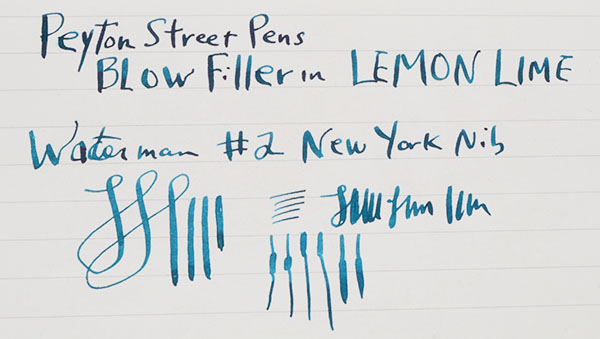 Peyton Street Pens
BLOW Filler in LEMON LIME
Waterman #2 New York Nib